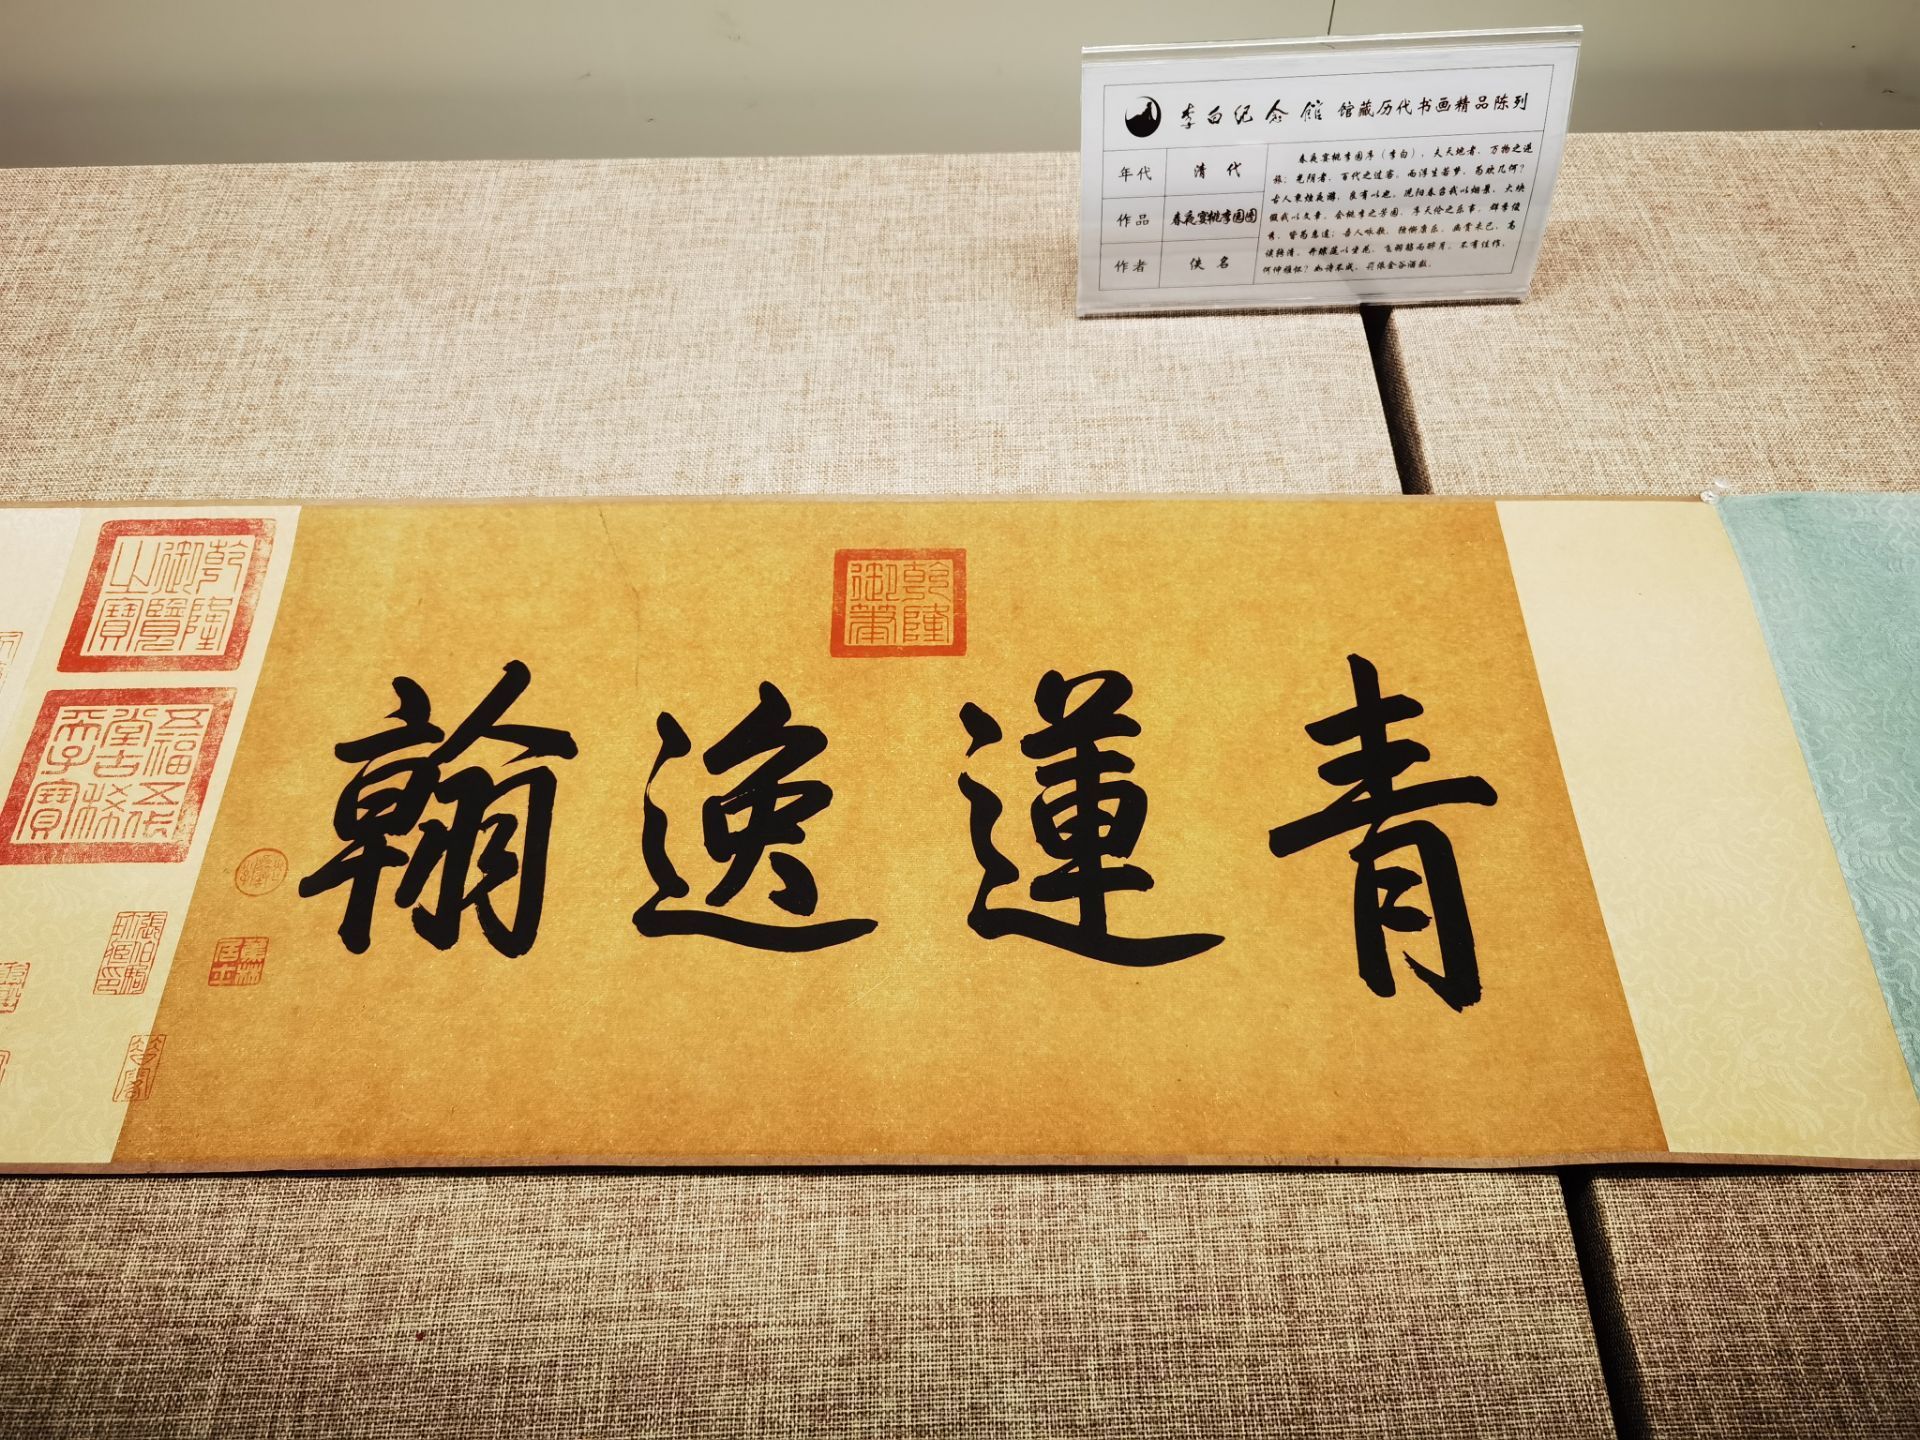 李白纪念馆 馆藏历代书画精品陈列
年代 清代
作品 春夜宴桃李园图
作者 佚名
春夜宴桃李园序（李白），夫天地者，万物之逆
旅；光阴者，百代之过客，而浮生若梦，为欢几何？
古人秉烛夜游，良有以也，况阳春召我以烟景，大块
假我以文章，会桃李之芳园，序天伦之乐事，群季俊
秀，皆为惠连；吾人咏歌，独惭康乐，幽赏未已，高
谈转清，开琼筵以坐花，飞羽觞而醉月，不有佳作，
何伸雅怀？如诗不成，罚依金谷酒数。
乾隆御筆
青蓮逸翰
乾隆御覽之寶
五福五代堂古稀天子寶
張伯駒珍藏印
蕉林居士